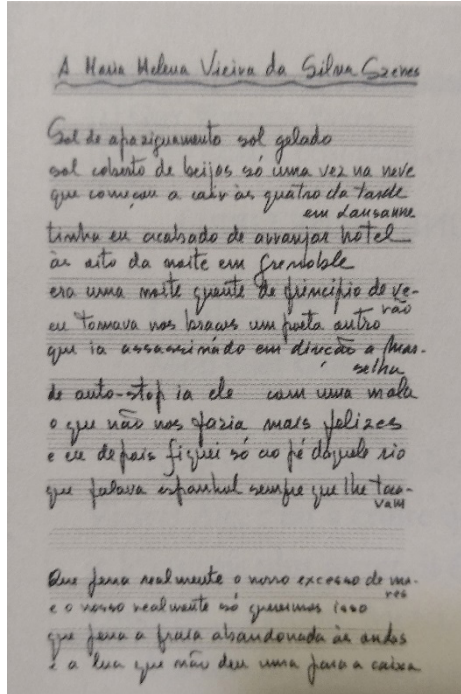 A Maria Helena Vieira da Silva Szenes
Sol de apaziguamento sol gelado
sol coberto de beijos só uma vez na neve
que começou a cair às quatro da tarde
em Lausanne
tinha eu acabado de arranjar hotel
às oito da noite em Grenoble
era uma noite quente de princípio de ve-
rão
eu tomava nos braços um poeta outro
que ia assassinado em direcção a Mar-
selha
de auto-stop ia ele com uma mala
o que não nos fazia mais felizes
e eu depois fiquei só ao pé daquele rio
que falava espanhol sempre que lhe toca-
vam
Que pena realmente o novo excesso de ma-
res
e o nosso realmente só queríamos isso
que pena a praia abandonada às ondas
e a lua que não deu uma para a caixa